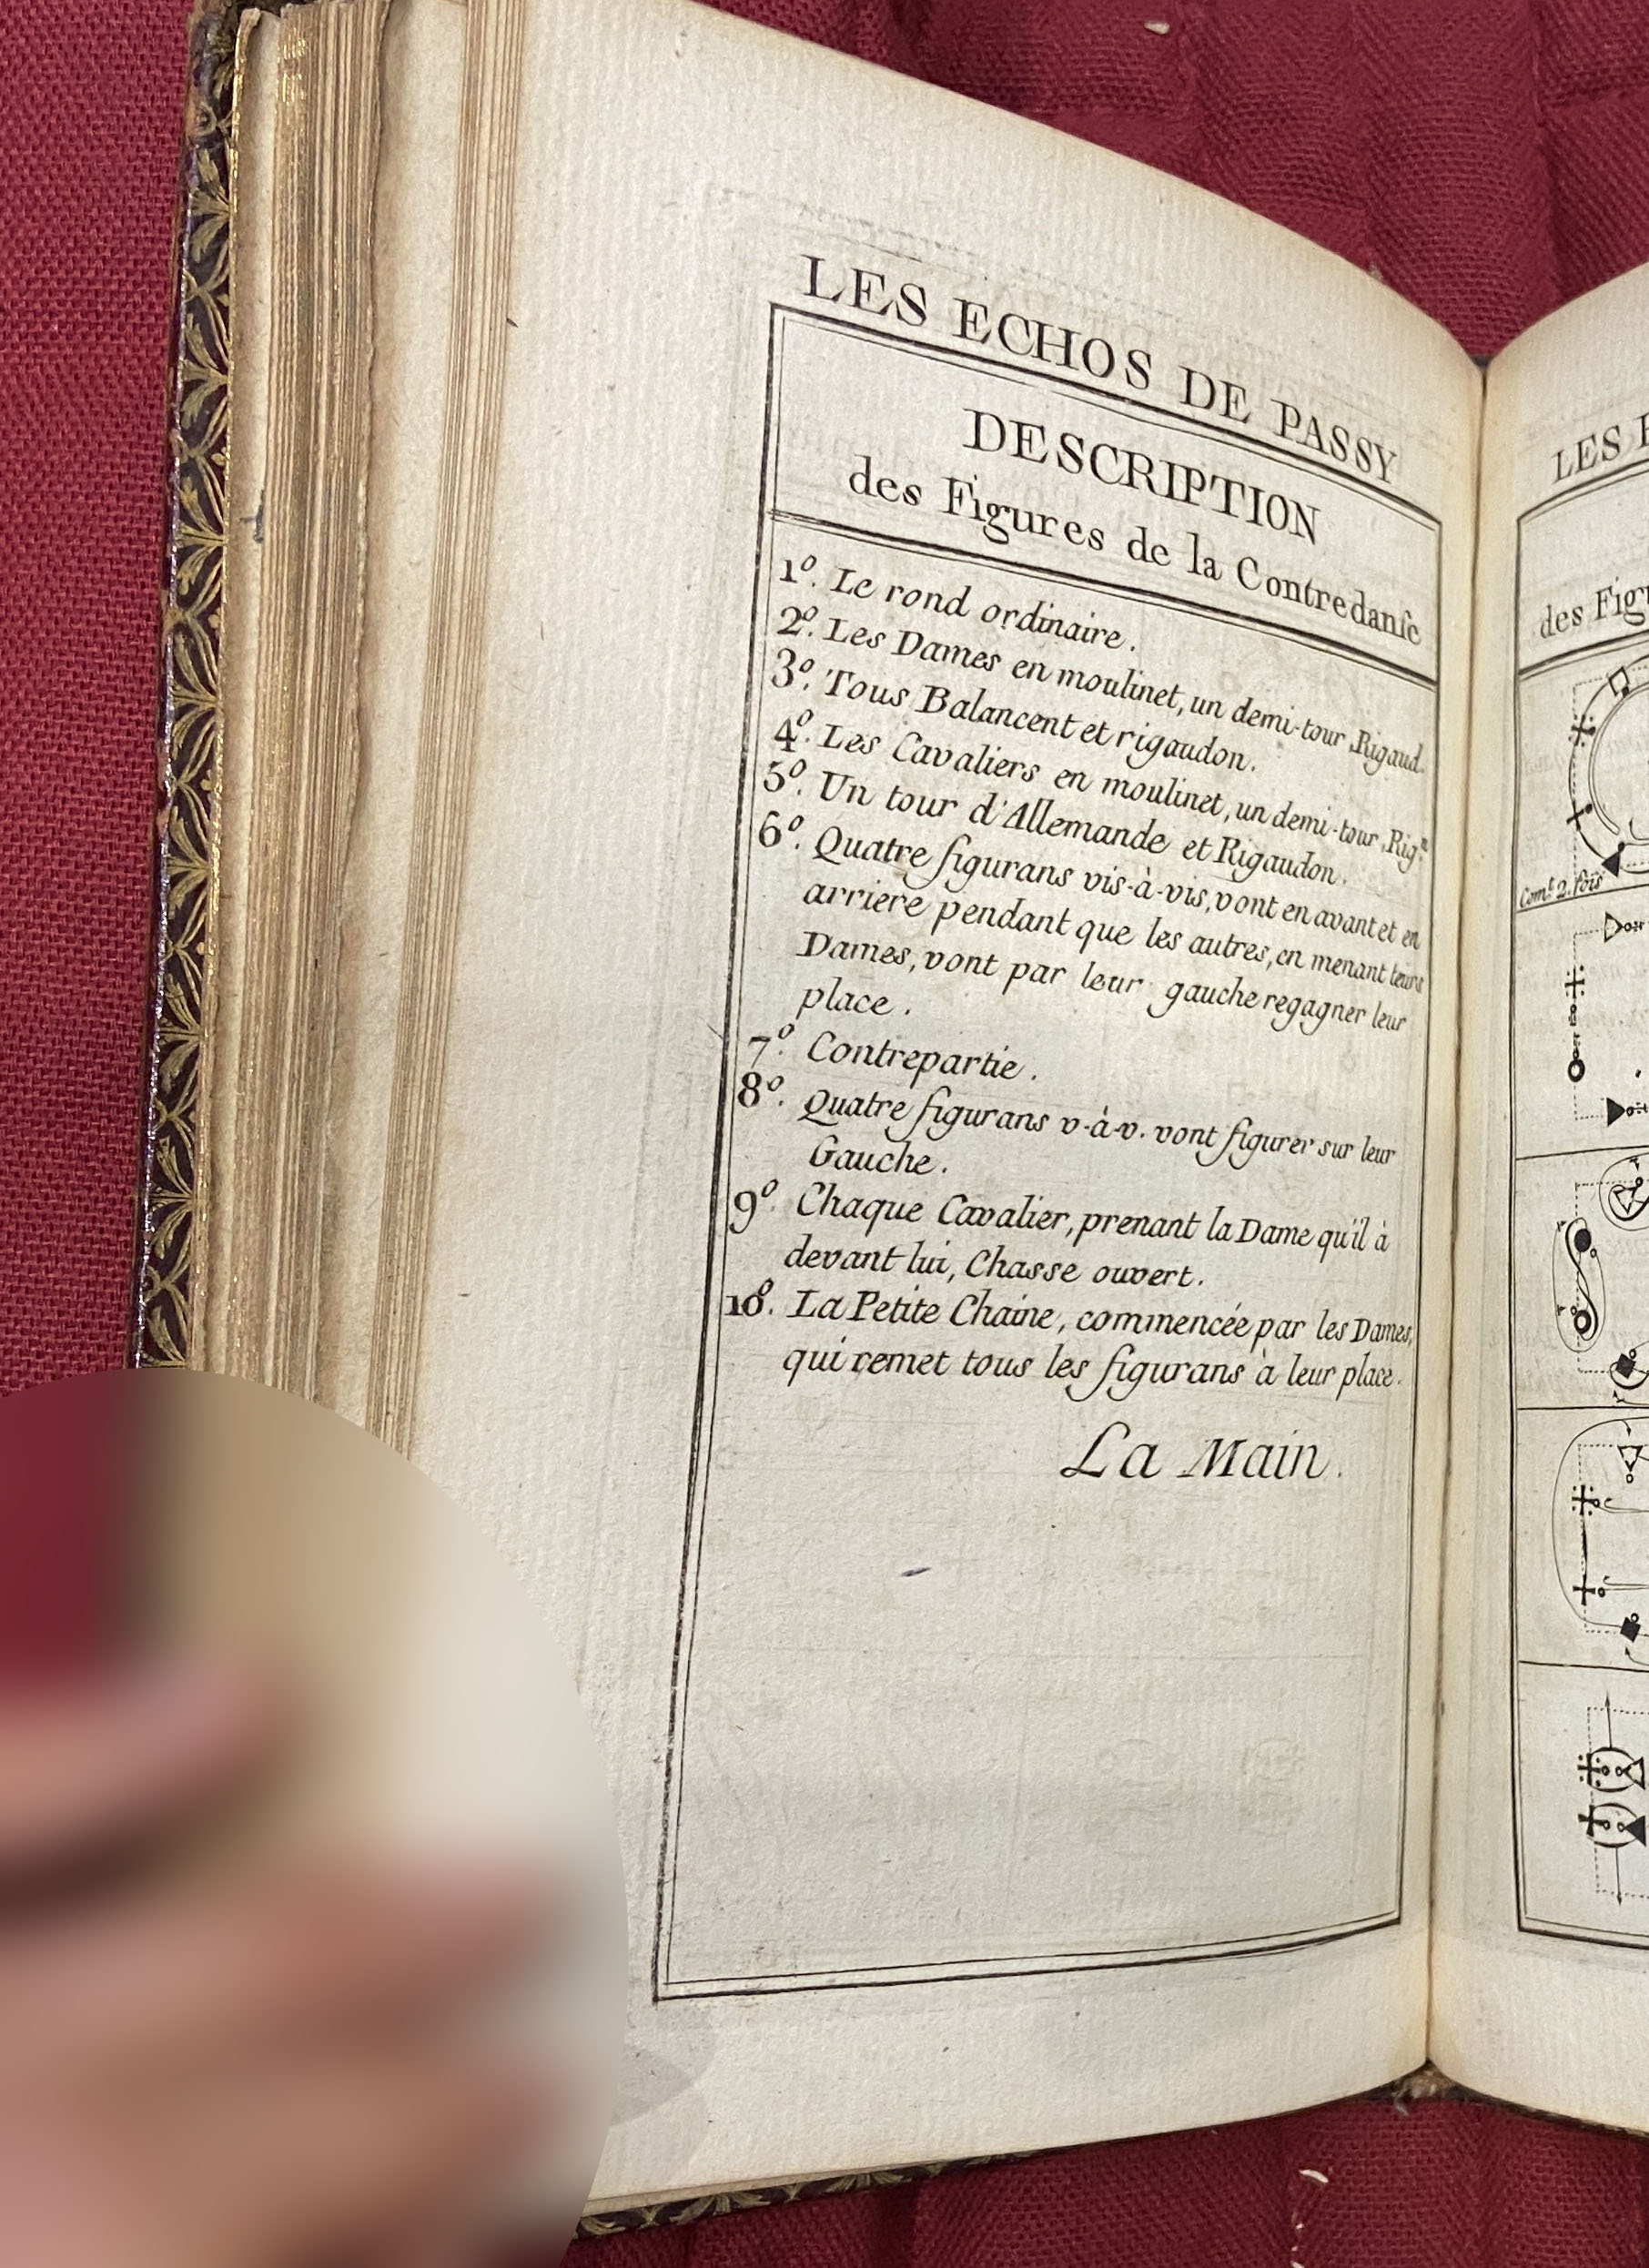 LES ECHOS DE PASSY
DESCRIPTION
des Figures de la Contredanſe
1º. Le rond ordinaire.
2º. Les Dames en moulinet, un demi-tour, Rigaud.
3º. Tous Balancent et rigaudon.
4º. Les Cavaliers en moulinet, un demi-tour, Rig.ⁿ
5º. Un tour d'Allemande et Rigaudon.
6º. Quatre figurans vis-à-vis, vont en avant et en
arriere pendant que les autres, en menant leurs
Dames, vont par leur gauche regagner leur
place.
7º. Contrepartie.
8º. Quatre figurans v-à-v. vont figurer sur leur
Gauche.
9º. Chaque Cavalier, prenant la Dame qu'il à
devant lui, Chasse ouvert.
10º. La Petite Chaine, commencée par les Dames,
qui remet tous les figurans à leur place.
La Main.
LES
des Fig
Com.ᵗ 2. fois